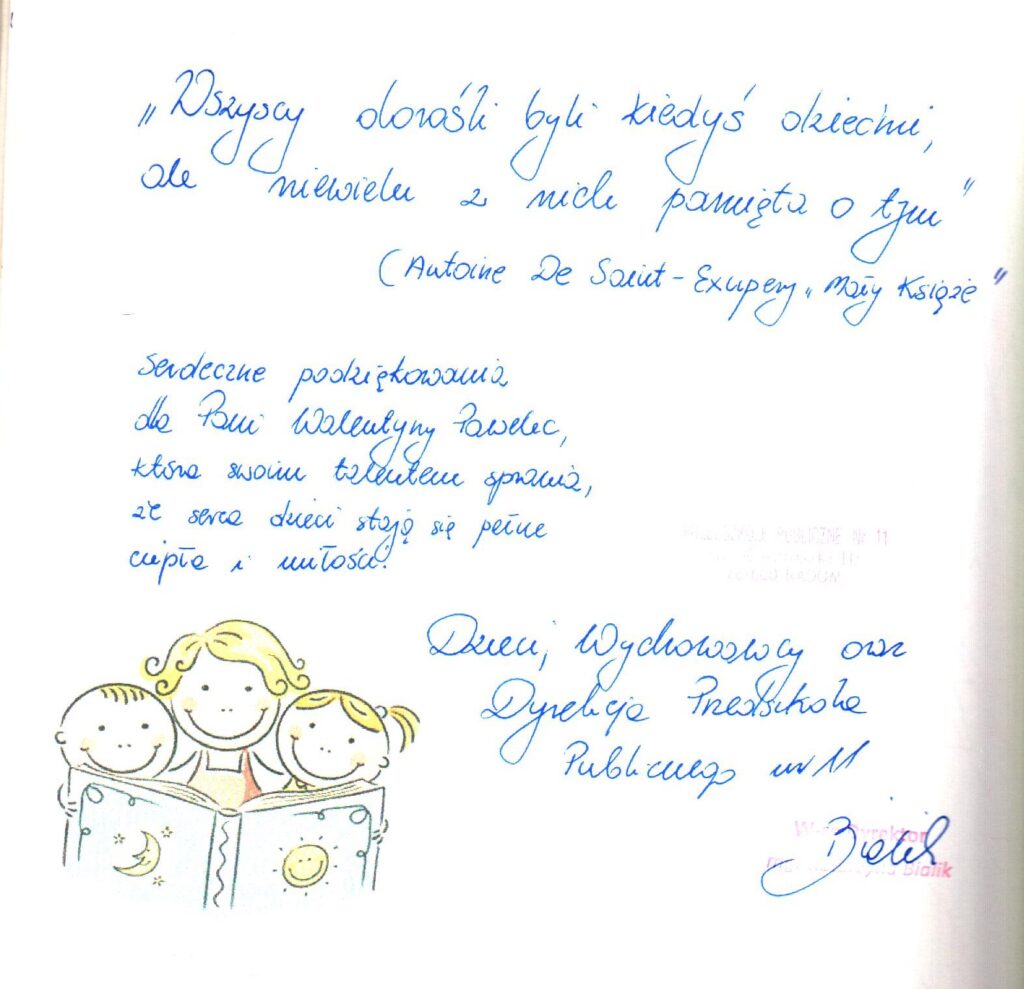 „Wszyscy dorośli byli kiedyś dziećmi,
ale niewielu z nich pamięta o tym"
(Antoine De Saint-Exupery „Mały Książe"
Serdeczne podziękowania
dla Pani Walentyny Pawelec,
która swoim talentem sprawia,
że serca dzieci stają się pełne
ciepła i miłości!
PRZEDSZKOLE PUBLICZNE NR 11
RADOM
Dzieci, Wychowawcy oraz
Dyrekcja Przedszkola
Publicznego nr 11
Dyrektor
Bialik
Bialik